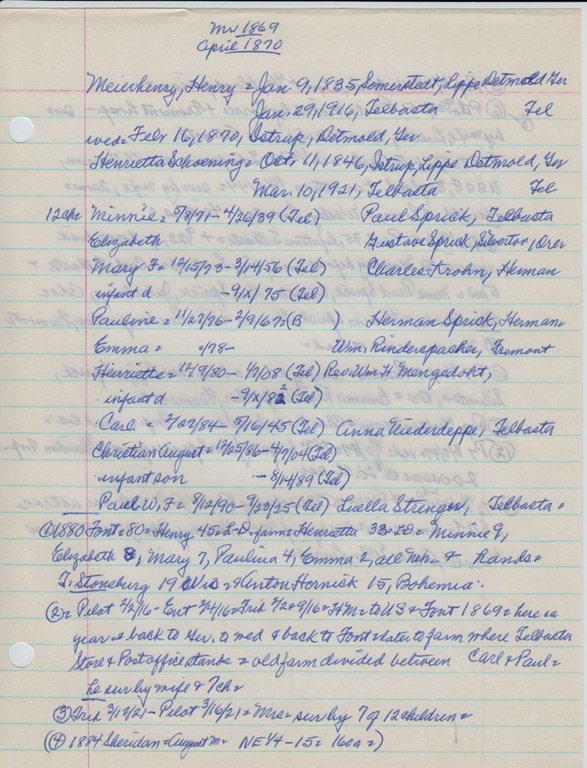 Mv 1869
April 1870
Meierhenry, Henry = Jan 9, 1835, Somerstedt, Lippe Detmold Ger
Jan. 29, 1916, Telbasta Tel
wed = Feb 16, 1870, Istrup, Detmold, Ger
Henrietta Schoening = Oct. 11, 1846, Istrup, Lippe Detmold, Ger
Mar. 10, 1921, Telbasta Tel
12 chr Minnie = 7/8/71 - 4/26/39 (Tel) Paul Sprick, Telbasta
Elizabeth Gustave Sprick, Silverton, Oreg
Mary F = 12/15/73 - 3/14/56 (Tel) Charles Krohn, Herman
infant d - 9/x/75 (Tel)
Pauline = 11/27/76 - 2/9/67 = (B ) Herman Sprick, Herman
Emma = 0/78 - Wm. Rinderspacher, Fremont
Henriette = 12/9/80 - 4/7/08 (Tel) Rev. Wm H. Mengedoht,
infant d - 9/x/82 (Tel)
Carl = 2/27/84 - 5/16/45 (Tel) Anna Niederdeppe, Telbasta
Christian August = 12/25/86 - 4/7/04 (Tel)
infant son - 8/14/89 (Tel)
Paul W. F = 9/12/90 - 9/22/25 (Tel) Luella Strenger, Telbasta =
① 1880 Font = 80 = Henry 45 = L-D = farm = Henrietta 33 = LD = Minnie 9,
Elizabeth 8, Mary 7, Paulina 4, Emma 2, all Neb = 4 hands =
T. Stoneburg 19 Wis = Anton Hornick 15, Bohemia =
② = Pilot 2/2/16 - Ent 2/4/16 = Trib 2/2 + 9/16 = HM = to US & Font 1869 = here a
year = & back to Ger. to wed & back to Font = later to farm where Telbasta
Store & Postoffice stands = old farm divided between Carl & Paul =
he sur by wife & 7 ch =
③ Trib 3/17/21 - Pilot 3/16/21 = Mrs = sur by 7 of 12 children =
(④ 1884 Sheridan = August m = NE 1/4 - 15 = 160 a = )